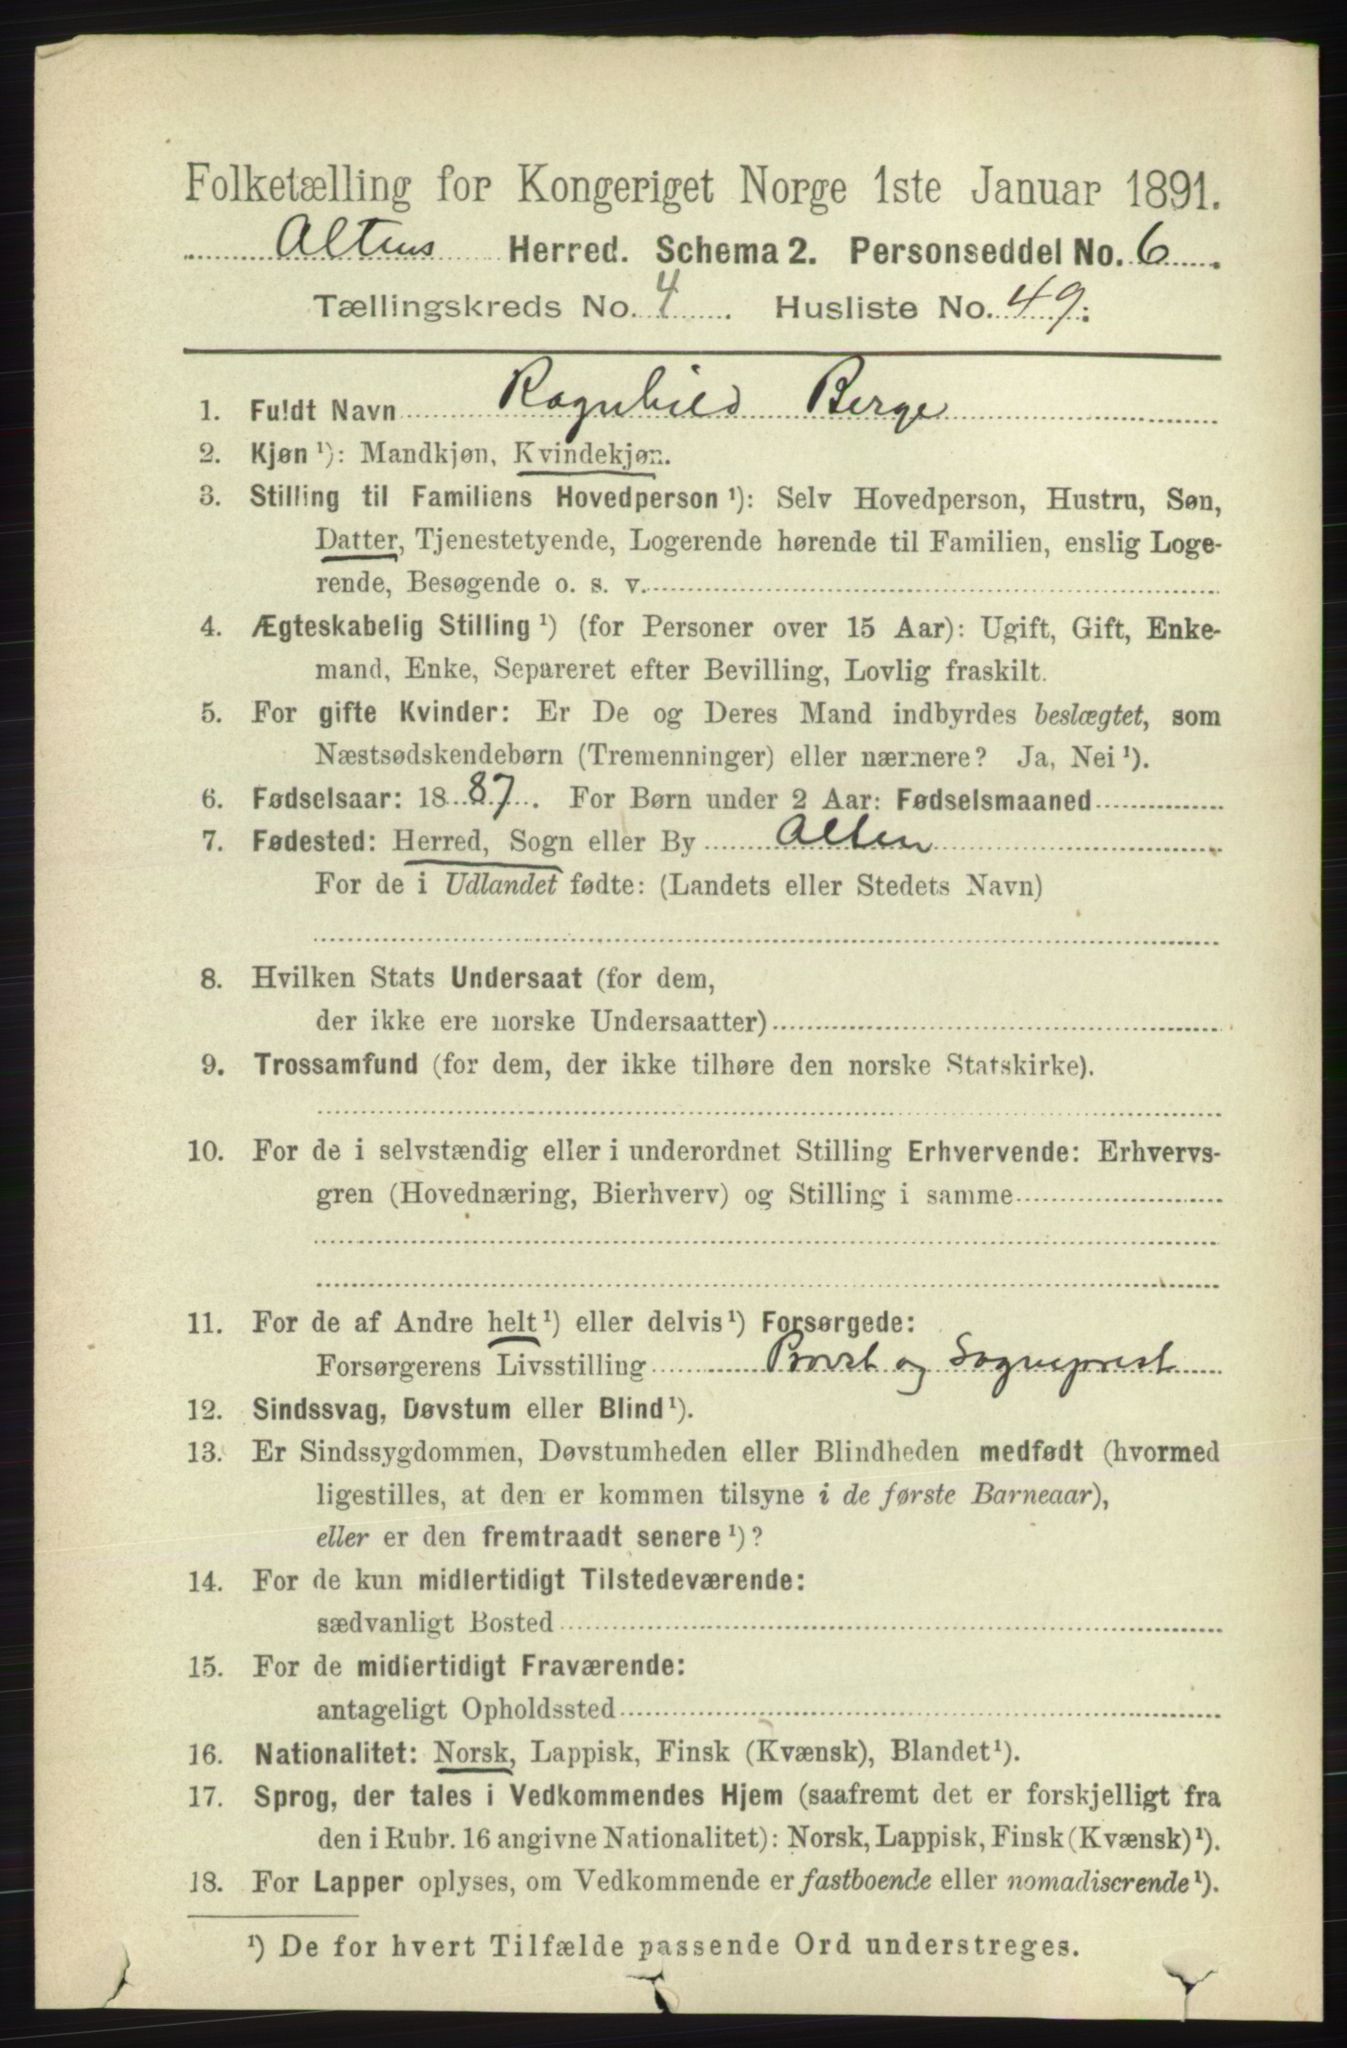 Folketælling for Kongeriget Norge 1ste Januar 1891.
Altens Herred. Schema 2. Personseddel No. 6.
Tællingskreds No. 4. Husliste No. 49.
1. Fuldt Navn Ragnhild Berge
2. Kjøn ¹): Mandkjøn, Kvindekjøn.
3. Stilling til Familiens Hovedperson ¹): Selv Hovedperson, Hustru, Søn,
Datter, Tjenestetyende, Logerende hørende til Familien, enslig Loge-
rende, Besøgende o. s. v.
4. Ægteskabelig Stilling ¹) (for Personer over 15 Aar): Ugift, Gift, Enke-
mand, Enke, Separeret efter Bevilling, Lovlig fraskilt.
5. For gifte Kvinder: Er De og Deres Mand indbyrdes beslægtet, som
Næstsødskendebørn (Tremenninger) eller nærmere? Ja, Nei ¹).
6. Fødselsaar: 1887. For Børn under 2 Aar: Fødselsmaaned
7. Fødested: Herred, Sogn eller By Alten
For de i Udlandet fødte: (Landets eller Stedets Navn)
8. Hvilken Stats Undersaat (for dem,
der ikke ere norske Undersaatter)
9. Trossamfund (for dem, der ikke tilhøre den norske Statskirke).
10. For de i selvstændig eller i underordnet Stilling Erhvervende: Erhvervs-
gren (Hovednæring, Bierhverv) og Stilling i samme
11. For de af Andre helt ¹) eller delvis ¹) Forsørgede:
Forsørgerens Livsstilling Provst og Sogneprest
12. Sindssvag, Døvstum eller Blind ¹).
13. Er Sindssygdommen, Døvstumheden eller Blindheden medfødt (hvormed
ligestilles, at den er kommen tilsyne i de første Barneaar),
eller er den fremtraadt senere ¹)?
14. For de kun midlertidigt Tilstedeværende:
sædvanligt Bosted
15. For de midlertidigt Fraværende:
antageligt Opholdssted
16. Nationalitet: Norsk, Lappisk, Finsk (Kvænsk), Blandet ¹).
17. Sprog, der tales i Vedkommendes Hjem (saafremt det er forskjelligt fra
den i Rubr. 16 angivne Nationalitet): Norsk, Lappisk, Finsk (Kvænsk) ¹).
18. For Lapper oplyses, om Vedkommende er fastboende eller nomadiserende ¹).
¹) De for hvert Tilfælde passende Ord understreges.